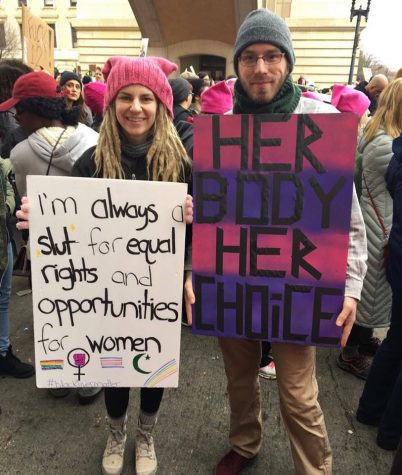 I'm always a
slut for equal
rights and
opportunities
for women
#blacklivesmatter
HER
BODY
HER
CHOiCE